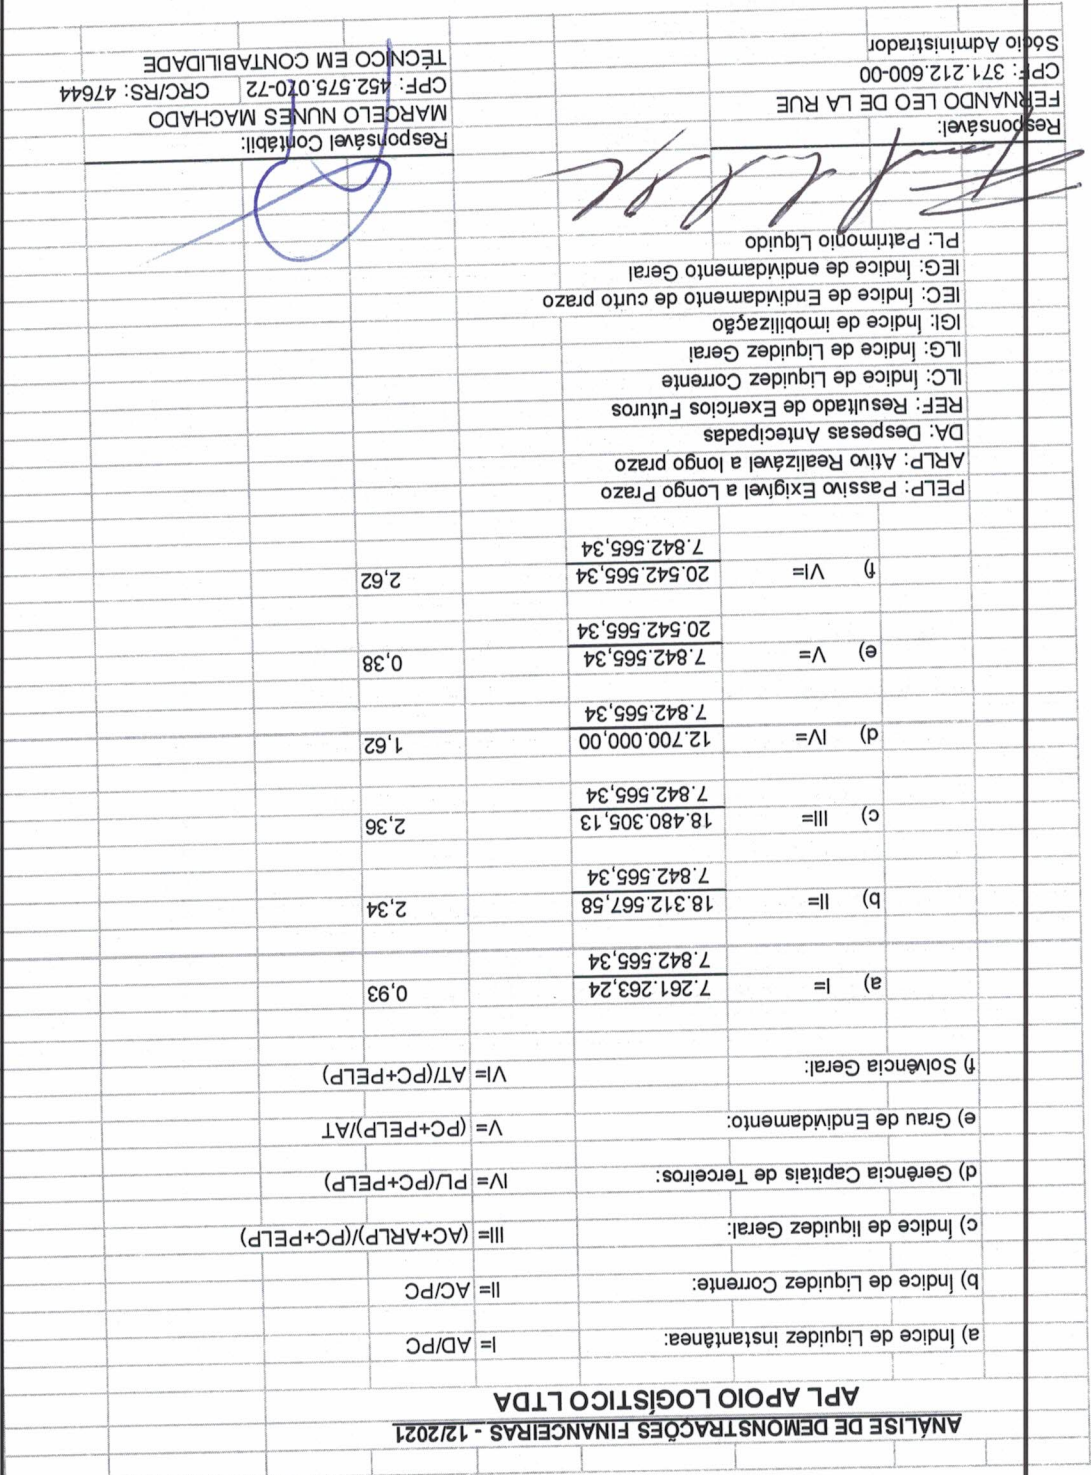 ANÁLISE DE DEMONSTRAÇÕES FINANCEIRAS - 12/2021
APL APOIO LOGÍSTICO LTDA
a) Índice de Liquidez instantânea: I= AD/PC
b) Índice de Liquidez Corrente: II= AC/PC
c) Índice de liquidez Geral: III= (AC+ARLP)/(PC+PELP)
d) Gerência Capitais de Terceiros: IV= PL/(PC+PELP)
e) Grau de Endividamento: V= (PC+PELP)/AT
f) Solvência Geral: VI= AT/(PC+PELP)
a) I= 7.261.263,24 0,93
7.842.565,34
b) II= 18.312.567,58 2,34
7.842.565,34
c) III= 18.480.305,13 2,36
7.842.565,34
d) IV= 12.700.000,00 1,62
7.842.565,34
e) V= 7.842.565,34 0,38
20.542.565,34
f) VI= 20.542.565,34 2,62
7.842.565,34
PELP: Passivo Exigível a Longo Prazo
ARLP: Ativo Realizável a longo prazo
DA: Despesas Antecipadas
REF: Resultado de Exerícios Futuros
ILC: Índice de Liquidez Corrente
ILG: Índice de Liquidez Geral
IGI: Índice de imobilização
IEC: Índice de Endividamento de curto prazo
IEG: Índice de endividamento Geral
PL: Patrimonio Líquido
Responsável: Responsável Contábil:
FERNANDO LEO DE LA RUE MARCELO NUNES MACHADO
CPF: 371.212.600-00 CPF: 452.575.070-72 CRC/RS: 47644
Sócio Administrador TÉCNICO EM CONTABILIDADE